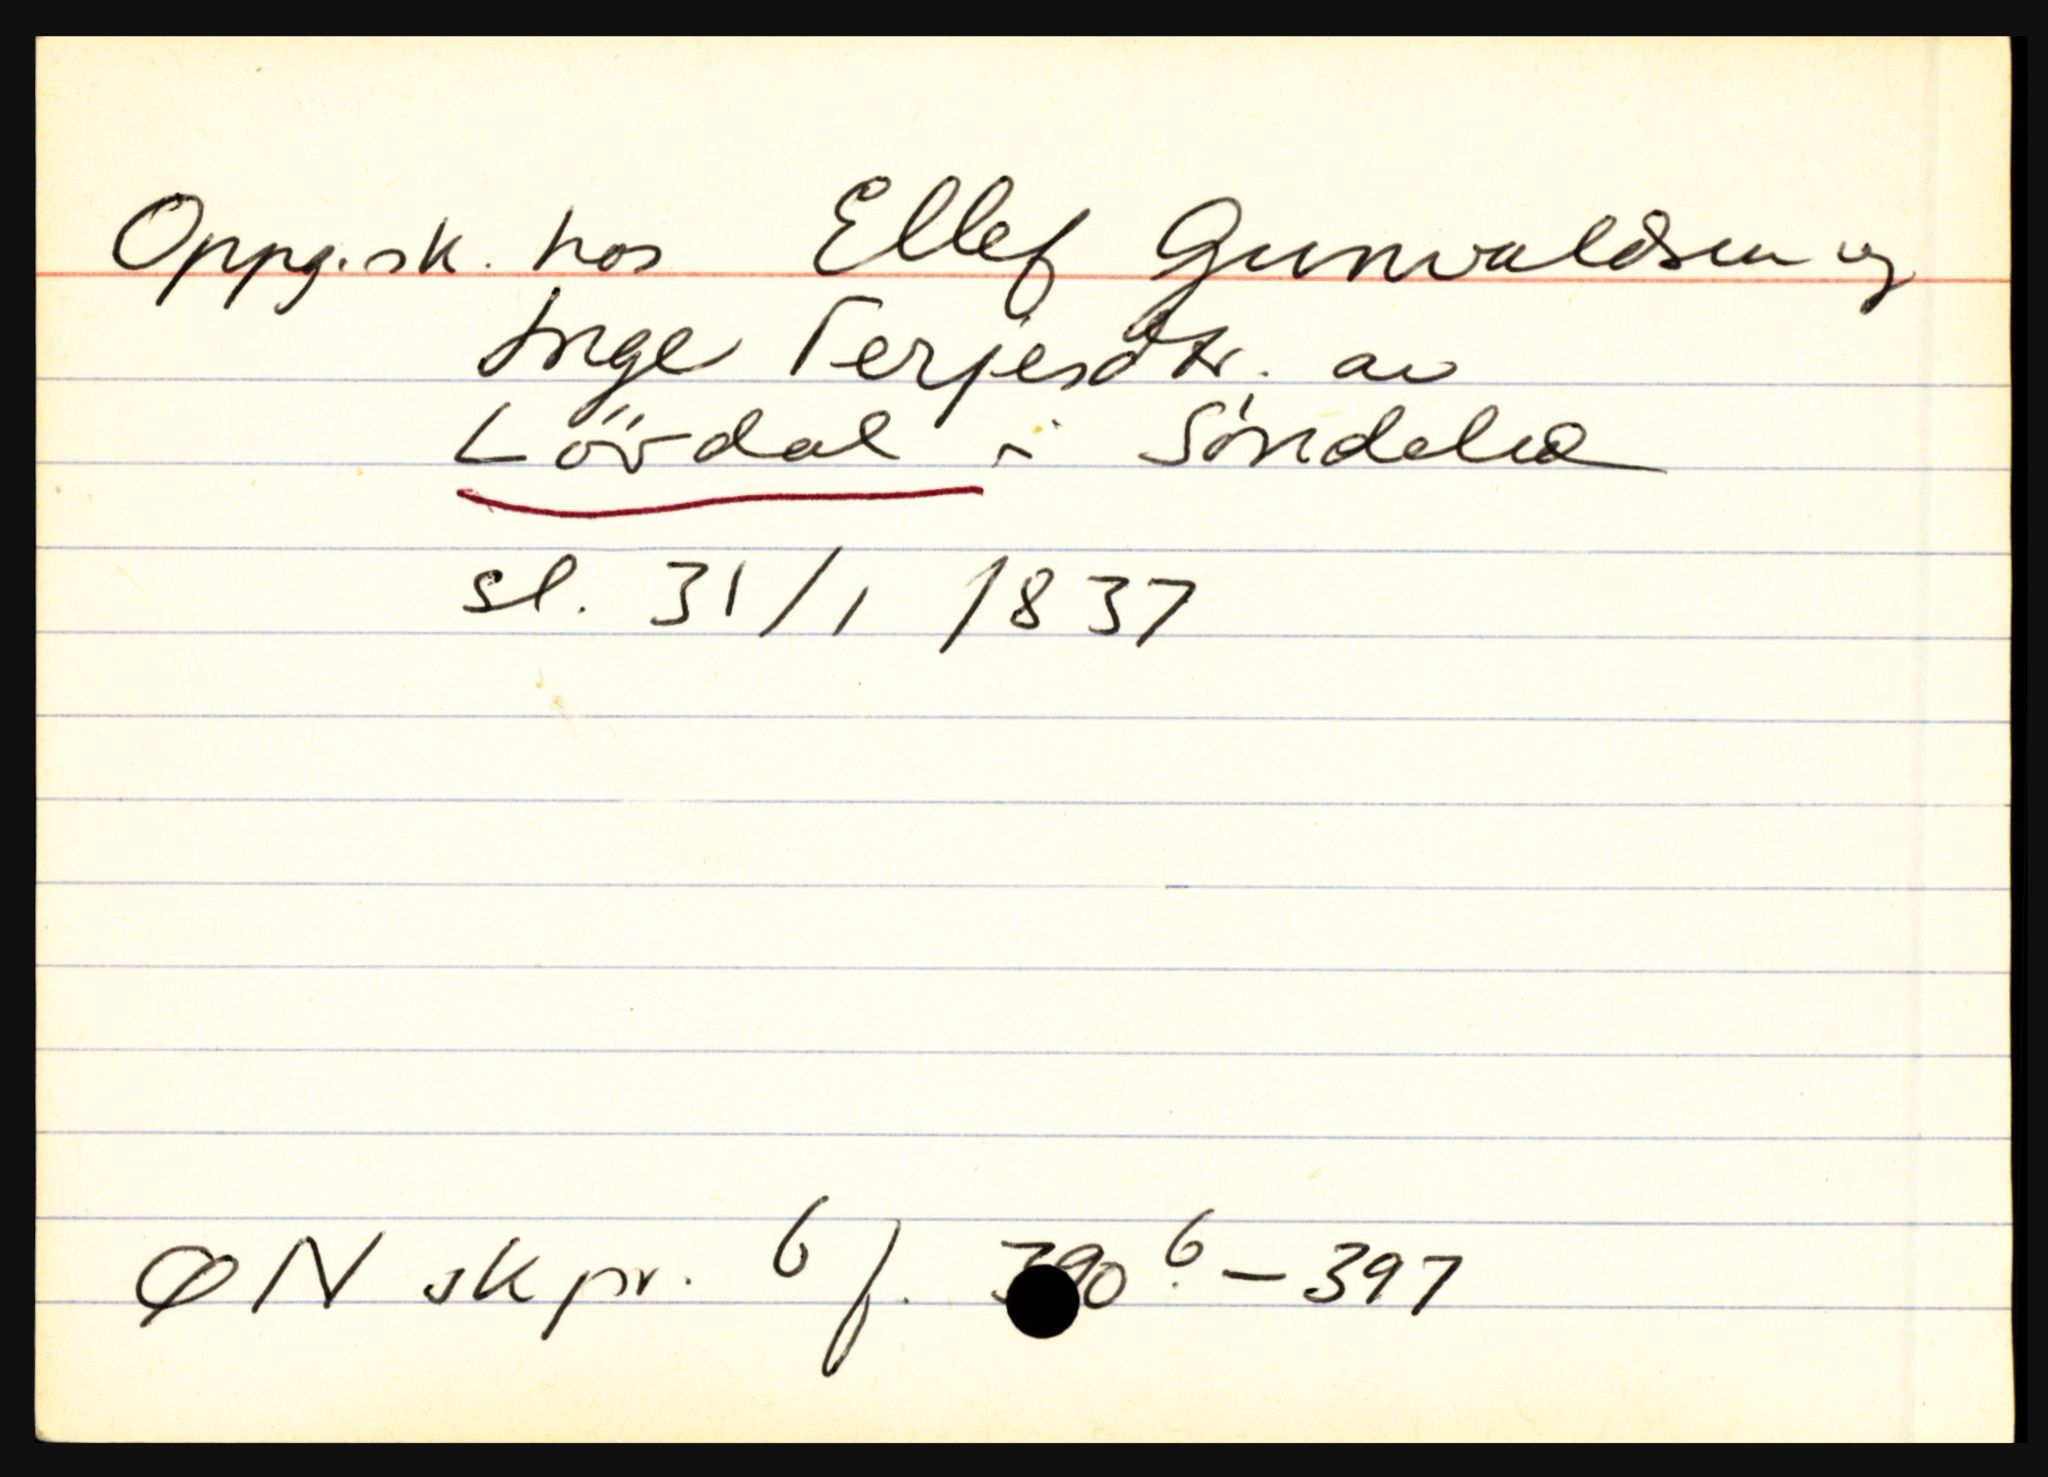 Oppg.sk. hos Ellef Gunvaldsen og
Inge Terjesdtr. av
Lövdal i Söndeled
sl. 31/1 1837
ØN skpr. 6 f. 390 b. - 397